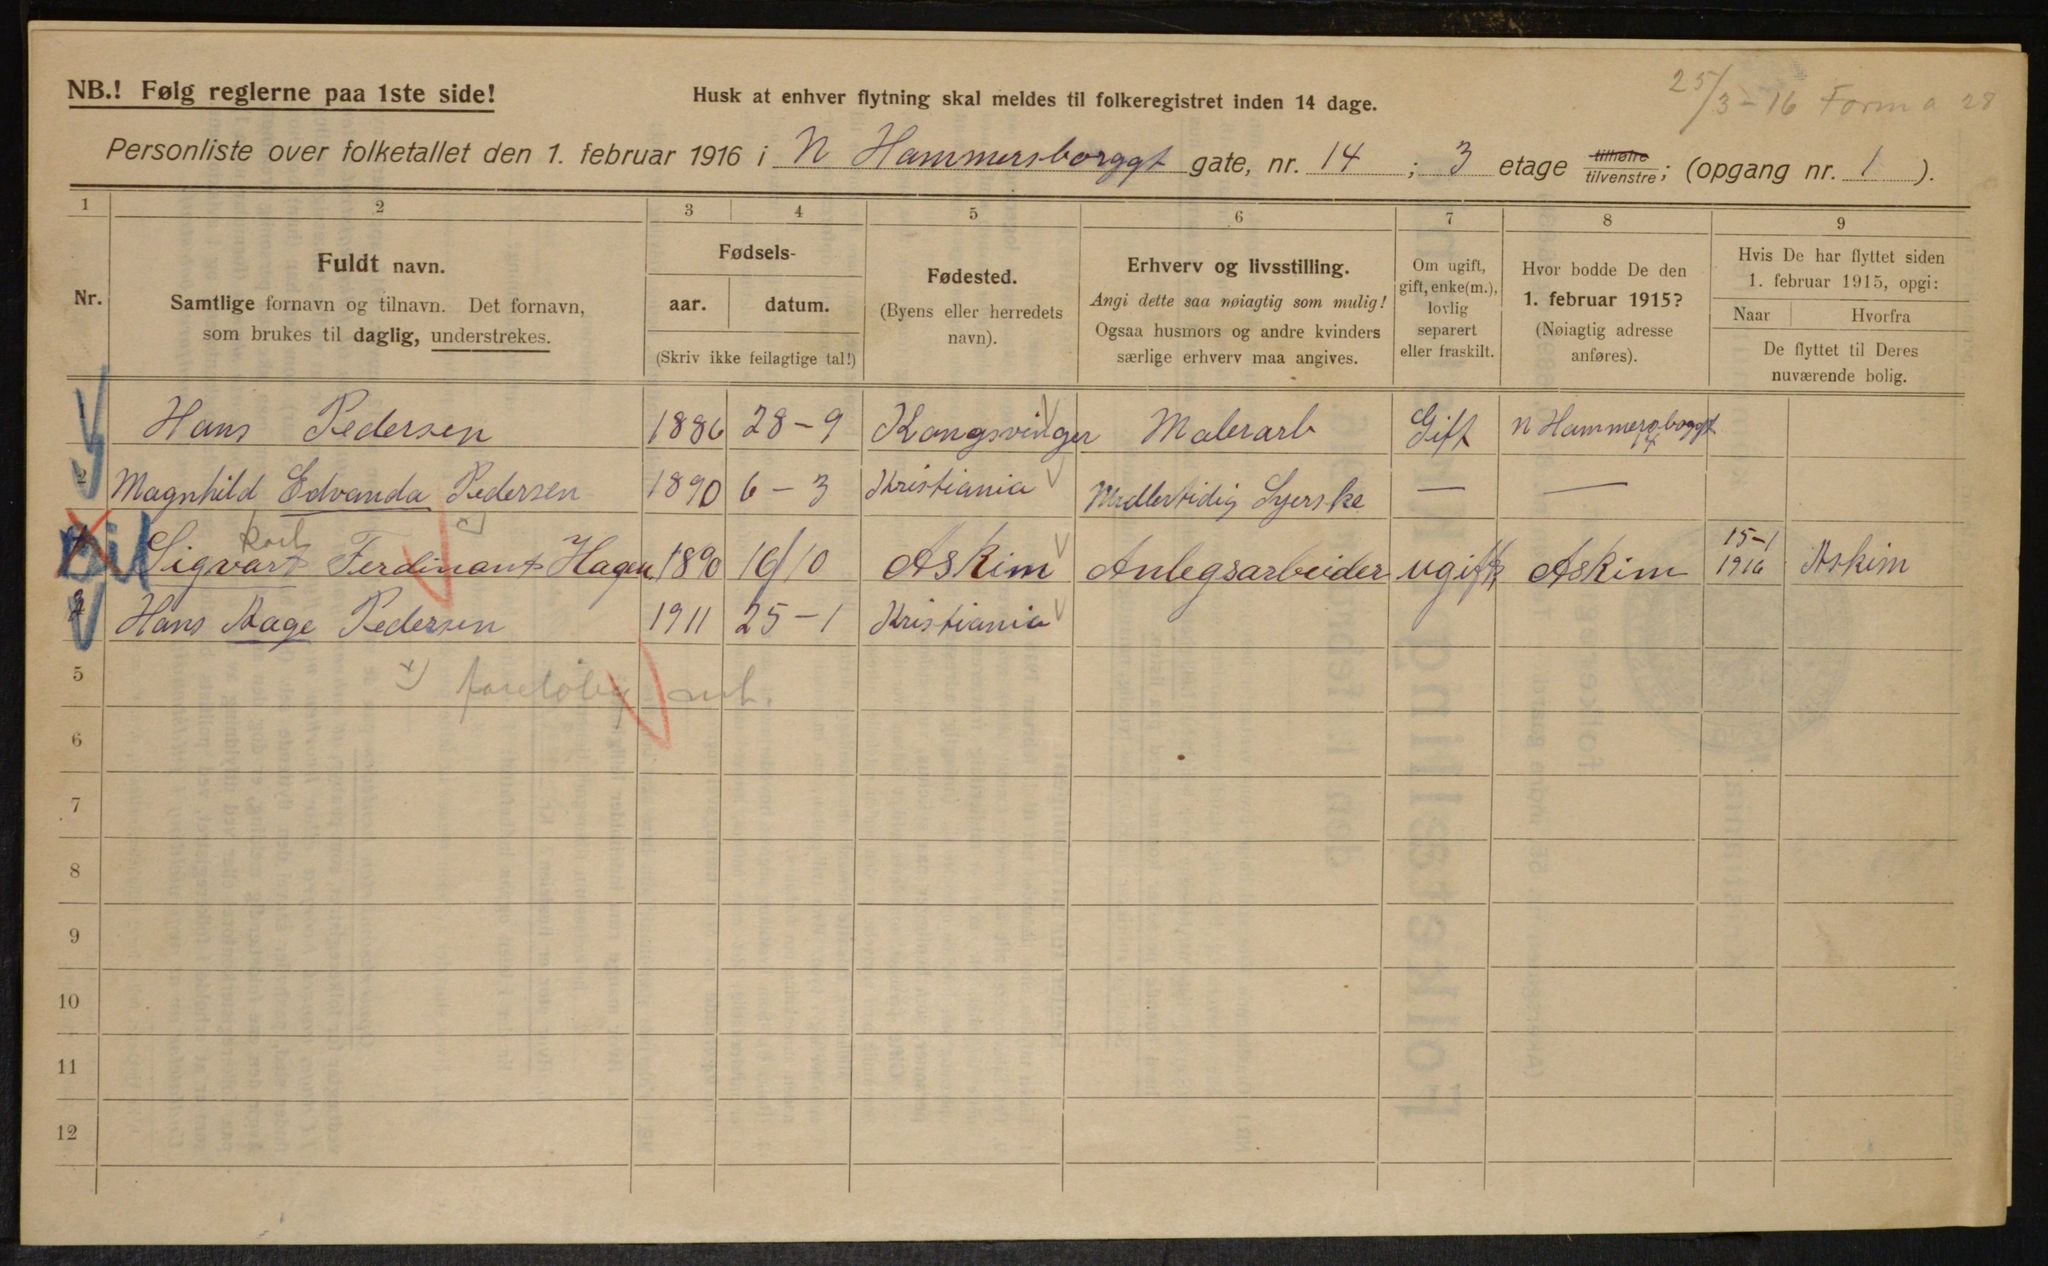 NB.! Følg reglerne paa 1ste side!
Husk at enhver flytning skal meldes til folkeregistret inden 14 dage.
25/3-16 Form a 28
Personliste over folketallet den 1. februar 1916 i N Hammersborggt gate, nr. 14 ; 3 etage tilhøire tilvenstre; (opgang nr. 1 ).
1 2 3 4 5 6 7 8 9
Nr.
Fuldt navn.
Samtlige fornavn og tilnavn. Det fornavn,
som brukes til daglig, understrekes.
Fødsels-
aar. datum.
(Skriv ikke feilagtige tal!)
Fødested.
(Byens eller herredets
navn).
Erhverv og livsstilling.
Angi dette saa nøiagtig som mulig!
Ogsaa husmors og andre kvinders
særlige erhverv maa angives.
Om ugift,
gift, enke(m.),
lovlig
separert
eller fraskilt.
Hvor bodde De den
1. februar 1915?
(Nøiagtig adresse
anføres).
Hvis De har flyttet siden
1. februar 1915, opgi:
Naar Hvorfra
De flyttet til Deres
nuværende bolig.
Hans Pedersen 1886 28-9 Kongsvinger Malerarb Gift N Hammersborggt 14
2 Magnhild Edvanda Pedersen 1890 6-3 Kristiania Midlertidig Syerske — —
Sigvart Ferdinant Hagen 1890 16/10 Askim Anlegsarbeider ugift Askim 15-1 1916 Askim
Hans Aage Pedersen 1911 25-1 Kristiania
5 x) foreløbig
6
7
8
9
10
11
12